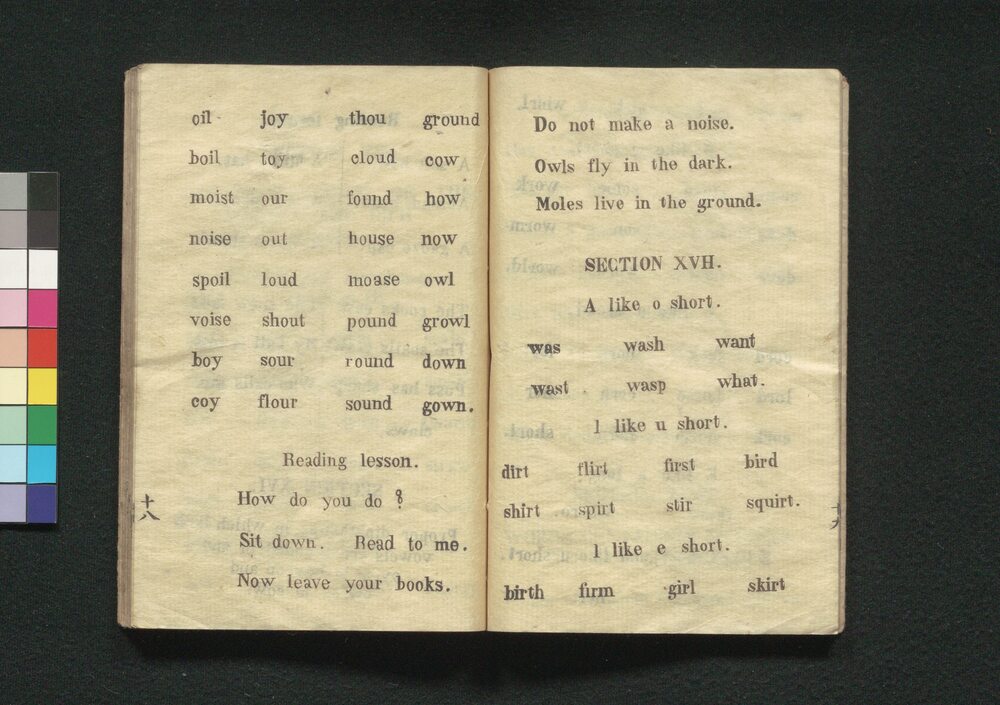 oil joy thou ground
boil toy cloud cow
moist our found how
noise out house now
spoil loud moase owl
voise shout pound growl
boy sour round down
coy flour sound gown.
Reading lesson.
How do you do ?
Sit down. Read to me.
Now leave your books.
十八
Do not make a noise.
Owls fly in the dark.
Moles live in the ground.
SECTION XVH.
A like o short.
was wash want
wast. wasp what.
l like u short.
dirt flirt first bird
shirt spirt stir squirt.
l like e short.
birth firm girl skirt